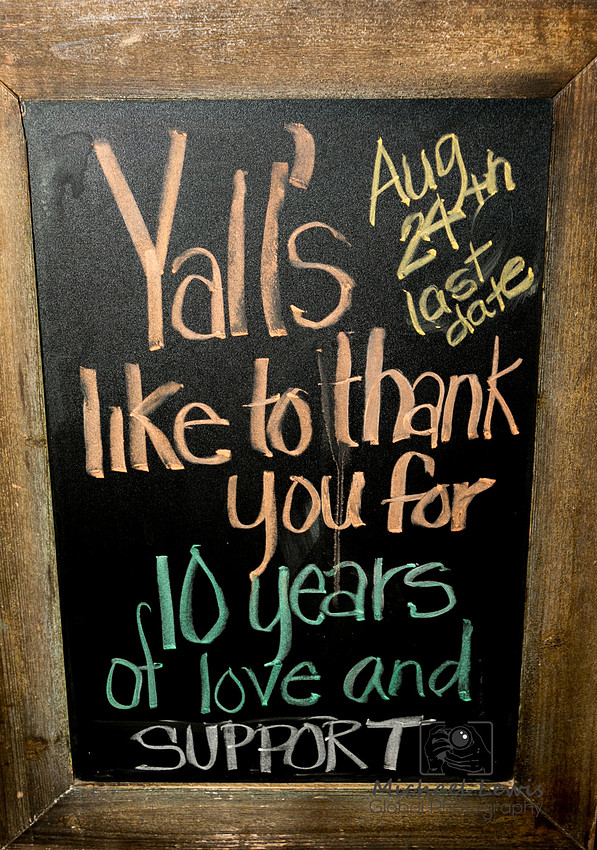 Yall's
Aug
24th
last
date
like to thank
you for
10 years
of love and
SUPPORT
Michael Lewis
Global Photography